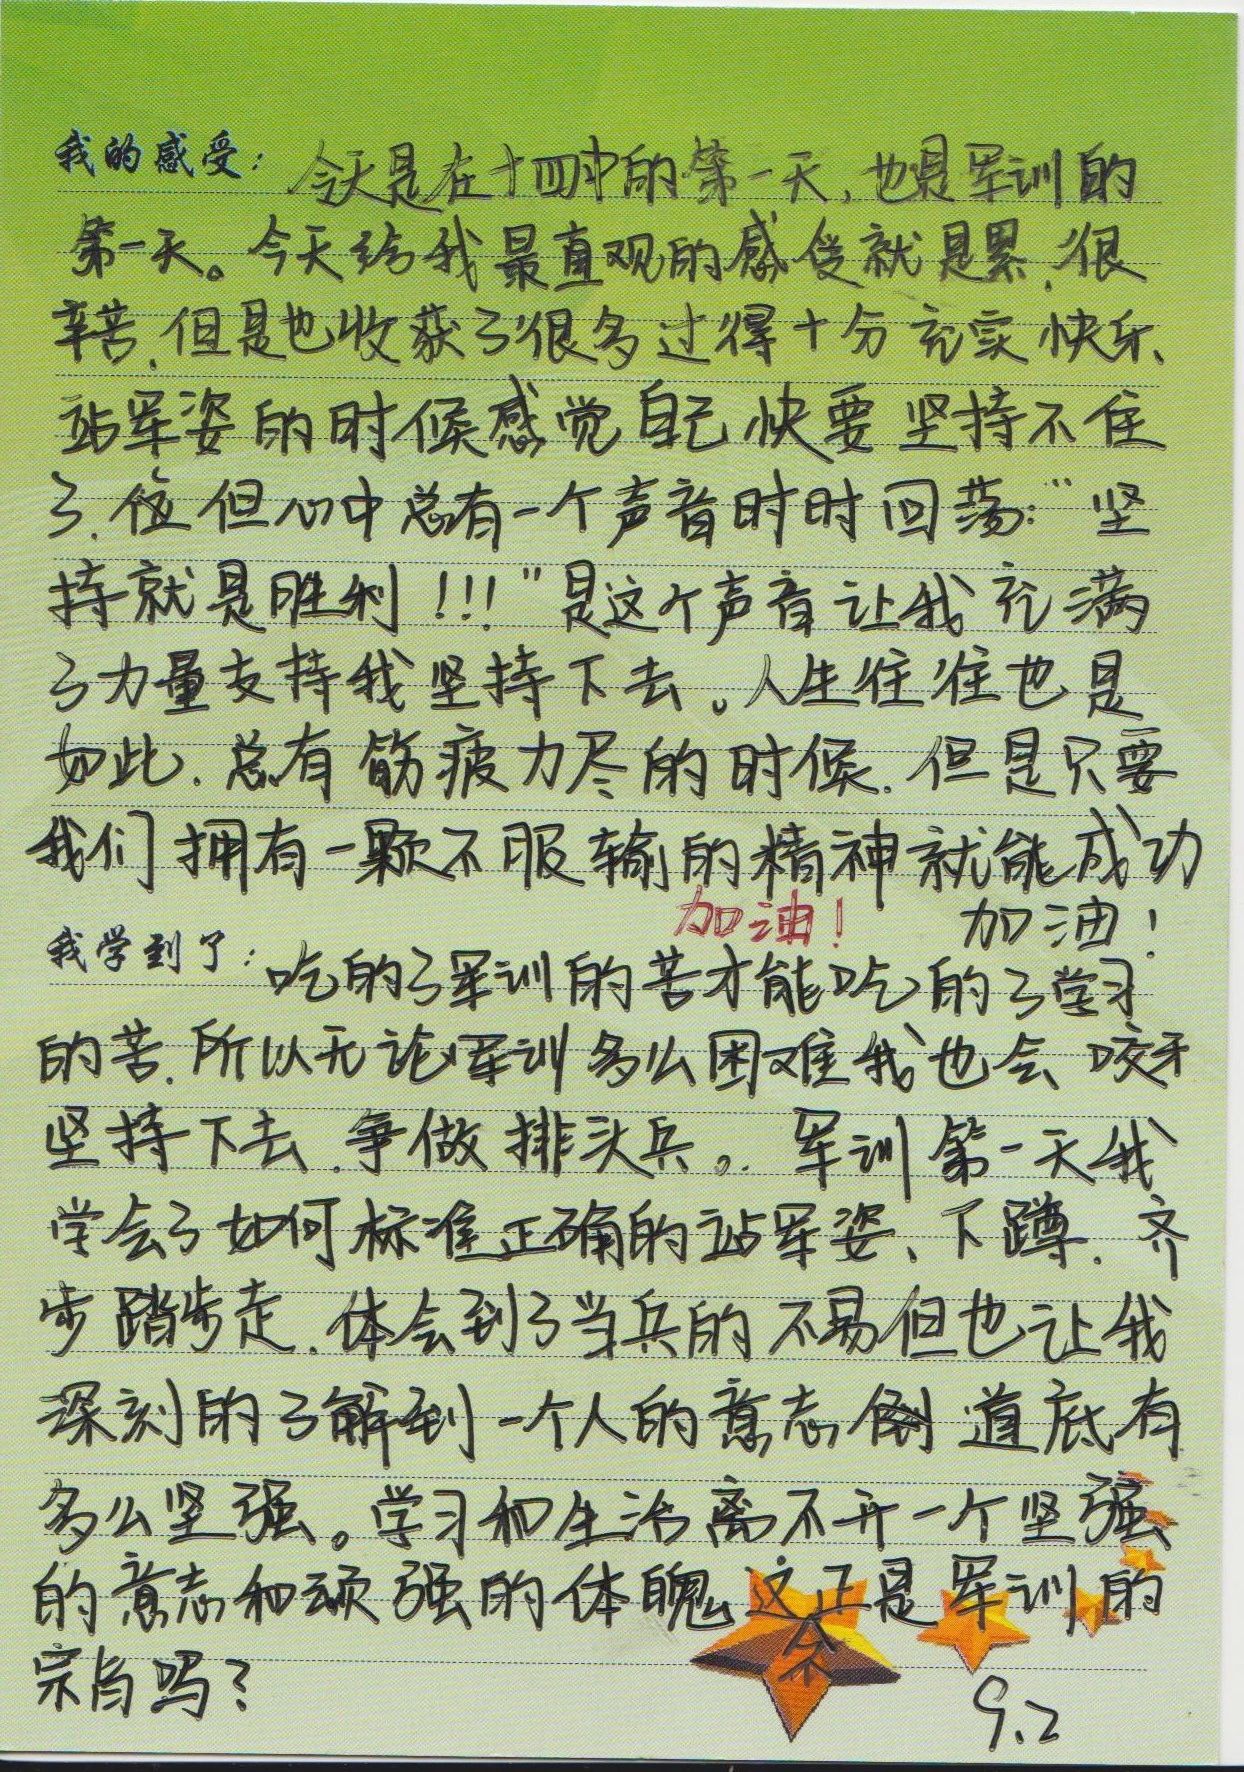 我的感受：今天是在十四中的第一天，也是军训的
第一天。今天给我最直观的感受就是累，很
辛苦，但是也收获了很多过得十分充实快乐、
站军姿的时候感觉自己快要坚持不住
了，但心中总有一个声音时时回荡：“坚
持就是胜利！！！”是这个声音让我充满
了力量支持我坚持下去。人生往往也是
如此，总有筋疲力尽的时候，但是只要
我们拥有一颗不服输的精神就能成功
加油！ 加油！
我学到了：吃的了军训的苦才能吃的了学习
的苦，所以无论军训多么困难我也会咬牙
坚持下去，争做排头兵。军训第一天我
学会了如何标准正确的站军姿、下蹲，齐
步踏步走，体会到了当兵的不易但也让我
深刻的了解到一个人的意志倒道底有
多么坚强。学习和生活离不开一个坚强
的意志和顽强的体魄，这正是军训的
宗旨吗？
9.2